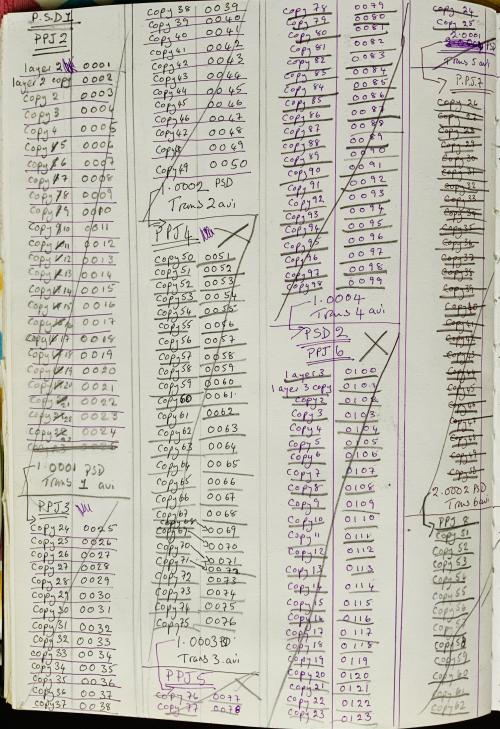 P.SD1
PPJ2
layer 2 0001
layer 2 copy 0002
Copy 2 0003
Copy 3 0004
Copy 4 0005
Copy 5 0006
Copy 6 0007
Copy 7 0008
Copy 8 0009
Copy 9 0010
Copy 10 0011
Copy 11 0012
Copy 12 0013
Copy 13 0014
Copy 14 0015
Copy 15 0016
Copy 16 0017
Copy 17 0018
Copy 18 0019
Copy 19 0020
Copy 20 0021
Copy 21 0022
Copy 22 0023
Copy 23 0024
1.0001 PSD
Trans 1 avi
PPJ3
Copy 24 0025
Copy 25 0026
Copy 26 0027
Copy 27 0028
Copy 28 0029
Copy 29 0030
Copy 30 0031
Copy 31 0032
Copy 32 0033
Copy 33 0034
Copy 34 0035
Copy 35 0036
Copy 36 0037
Copy 37 0038
Copy 38 0039
Copy 39 0040
Copy 40 0041
Copy 41 0042
Copy 42 0043
Copy 43 0044
Copy 44 0045
Copy 45 0046
Copy 46 0047
Copy 47 0048
Copy 48 0049
Copy 49 0050
1.0002 PSD
Trans 2 avi
PPJ4
Copy 50 0051
Copy 51 0052
Copy 52 0053
Copy 53 0054
Copy 54 0055
Copy 55 0056
Copy 56 0057
Copy 57 0058
Copy 58 0059
Copy 59 0060
Copy 60 0061
Copy 61 0062
Copy 62 0063
Copy 63 0064
Copy 64 0065
Copy 65 0066
Copy 66 0067
Copy 67 0068
Copy 68 0069
Copy 69 0070
Copy 70 0071
Copy 71 0072
Copy 72 0073
Copy 73 0074
Copy 74 0075
Copy 75 0076
1.0003 PSD
Trans 3. avi
PPJ5
Copy 76 0077
Copy 77 0078
Copy 78 0079
Copy 79 0080
Copy 80 0081
Copy 81 0082
Copy 82 0083
Copy 83 0084
Copy 84 0085
Copy 85 0086
Copy 86 0087
Copy 87 0088
Copy 88 0089
Copy 89 0090
Copy 90 0091
Copy 91 0092
Copy 92 0093
Copy 93 0094
Copy 94 0095
Copy 95 0096
Copy 96 0097
Copy 97 0098
Copy 98 0099
1.0004
Trans 4 avi
PSD 2
PPJ6
Layer 3 0100
layer 3 copy 0101
Copy 2 0102
Copy 3 0103
Copy 4 0104
Copy 5 0105
Copy 6 0106
Copy 7 0107
Copy 8 0108
Copy 9 0109
Copy 10 0110
Copy 11 0111
Copy 12 0112
Copy 13 0113
Copy 14 0114
Copy 15 0115
Copy 16 0116
Copy 17 0117
Copy 18 0118
Copy 19 0119
Copy 20 0120
Copy 21 0121
Copy 22 0122
Copy 23 0123
Copy 24
Copy 25
2.0001
PSD
Trans 5 avi
P.PJ.7
Copy 26
Copy 27
Copy 28
Copy 29
Copy 30
Copy 31
Copy 32
Copy 33
Copy 34
Copy 35
Copy 36
Copy 37
Copy 38
Copy 39
Copy 40
Copy 41
Copy 42
Copy 43
Copy 44
Copy 45
Copy 46
Copy 47
Copy 48
2.0002 PSD
Trans 6 avi
PPJ 8
Copy 51
Copy 52
Copy 53
Copy 54
Copy 55
Copy 56
Copy 57
Copy 58
Copy 59
Copy 60
Copy 61
Copy 62